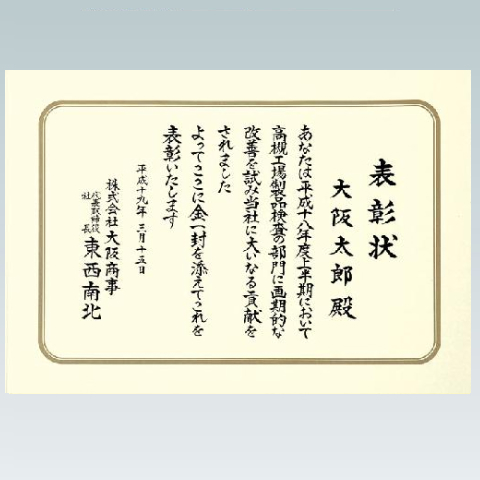 表彰状
大阪太郎殿
あなたは平成十八年度上半期において
高槻工場製品検査の部門に画期的な
改善を試み当社に大いなる貢献を
されました
よってここに金一封を添えてこれを
表彰いたします
平成十九年三月十五日
株式会社大阪商事
代表取締役
社長
東西南北